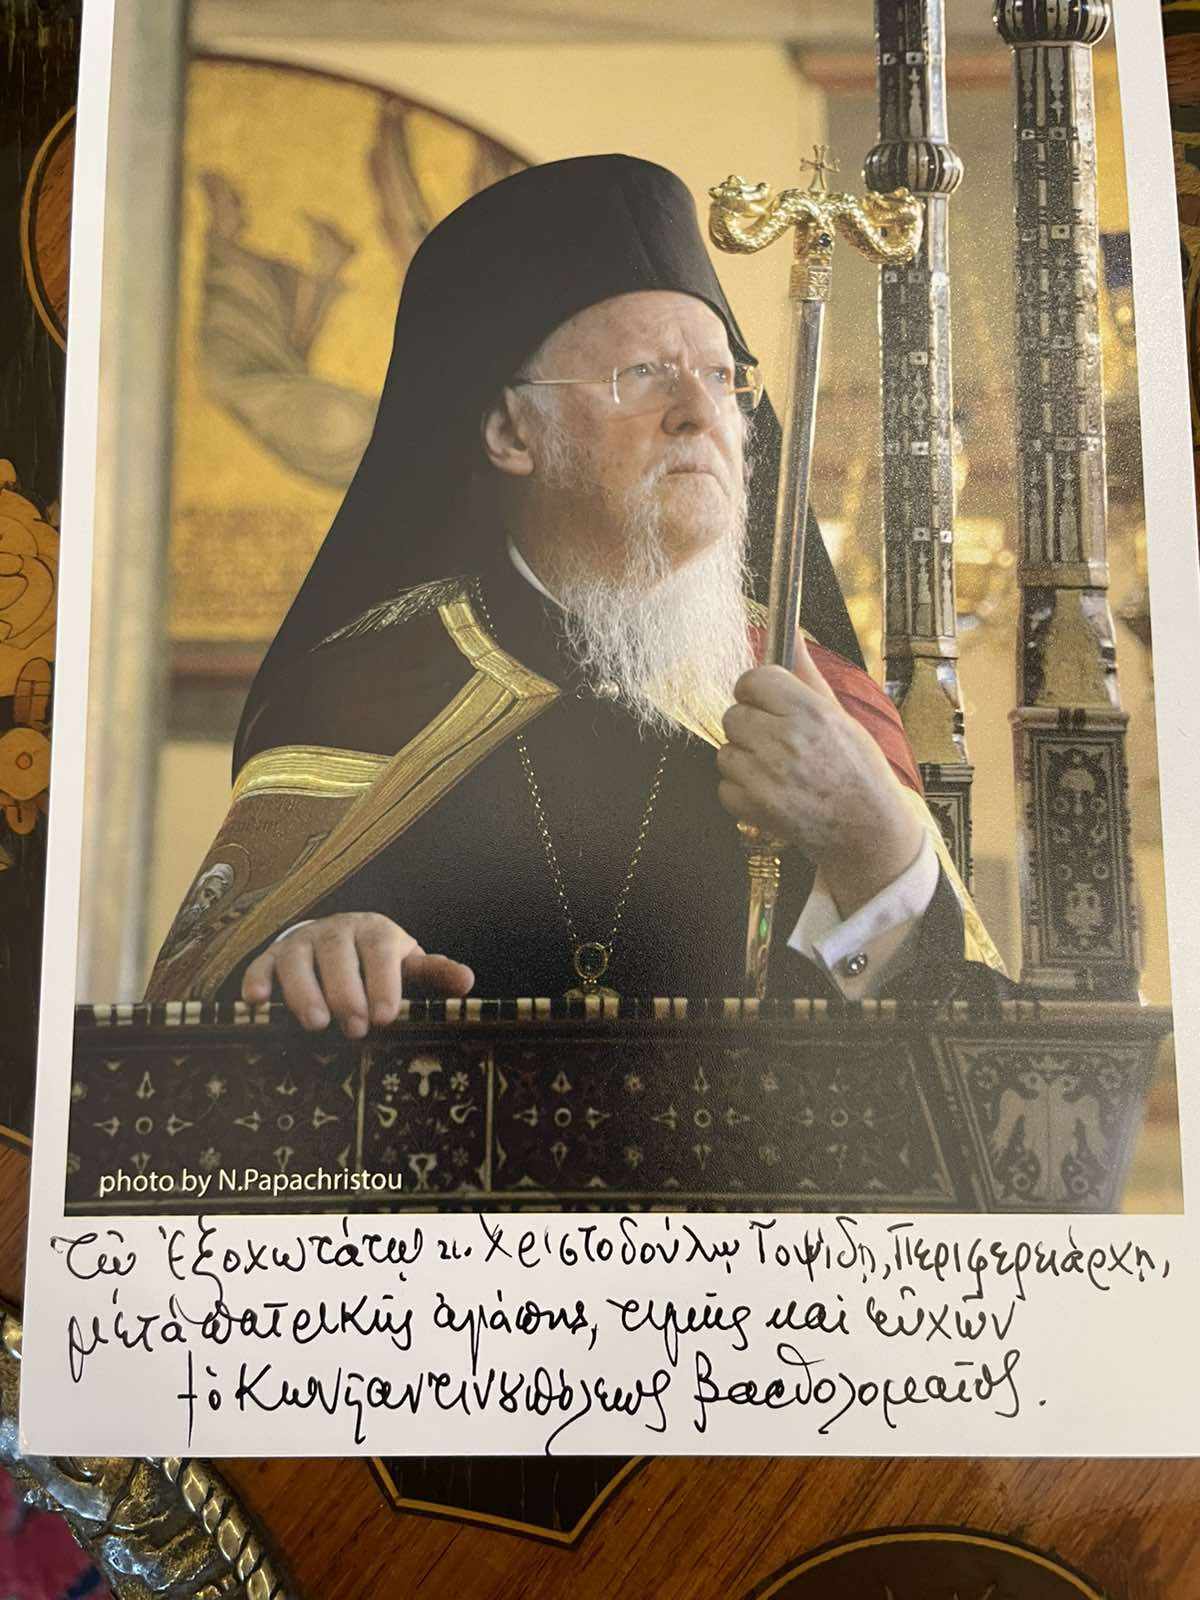 photo by N.Papachristou
Τῷ Ἐξοχωτάτῳ κ. Χριστοδούλῳ Τοψίδῃ, Περιφερειάρχῃ,
μετά πατρικῆς ἀγάπης, τιμῆς καί εὐχῶν
† ὁ Κωνσταντινουπόλεως Βαρθολομαῖος.